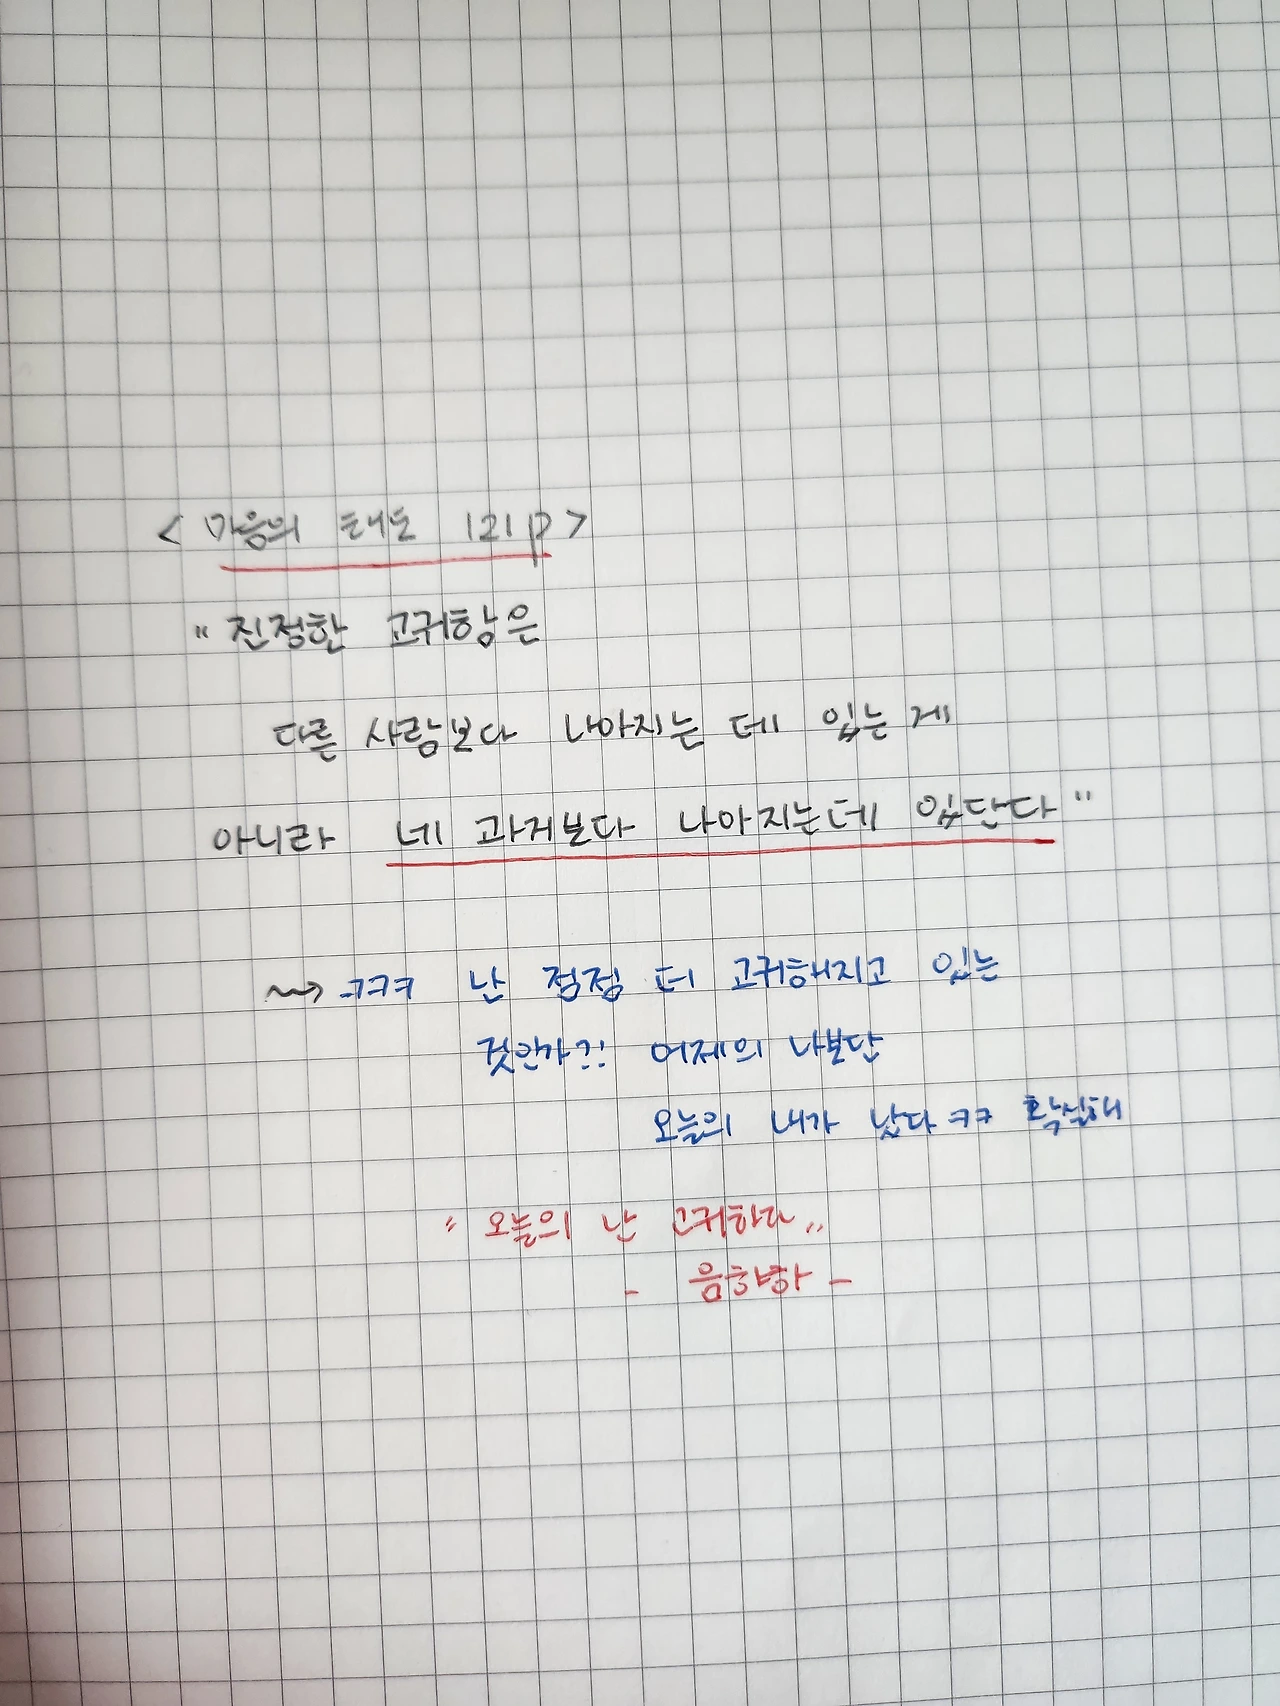 < 마음의 태도 121p >
" 진정한 고귀함은
다른 사람보다 나아지는 데 있는 게
아니라 네 과거보다 나아지는데 있단다 "
~> ㅋㅋㅋ 난 점점 더 고귀해지고 있는
것인가?! 어제의 나보단
오늘의 내가 낫다 ㅋㅋ 확실해
" 오늘의 난 고귀하다 "
- 음하하하 -